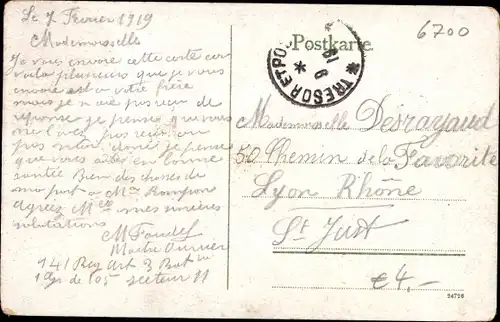 Le 7 Fevrier 1919
Mademoiselle
Je vous envoie cette carte car
voila plusieurs que je vous
envoie et a votre frère
mais je n ai pas reçu de
reponse je pense que vous
ne l'avez pas reçu ou
pas interdonné je pense
que vous etes en bonne
santée Bien des choses de
ma part a Mme
agreez Melle mes sincères
salutations
M
Maitre Ouvrier
141 Reg Art 3 Bat
de 105 secteur 11
Postkarte.
TRESOR ET POS
6700
Mademoiselle Desrayaud
50 Chemin de la Favorite
Lyon Rhône
St Just
€4,-
24728